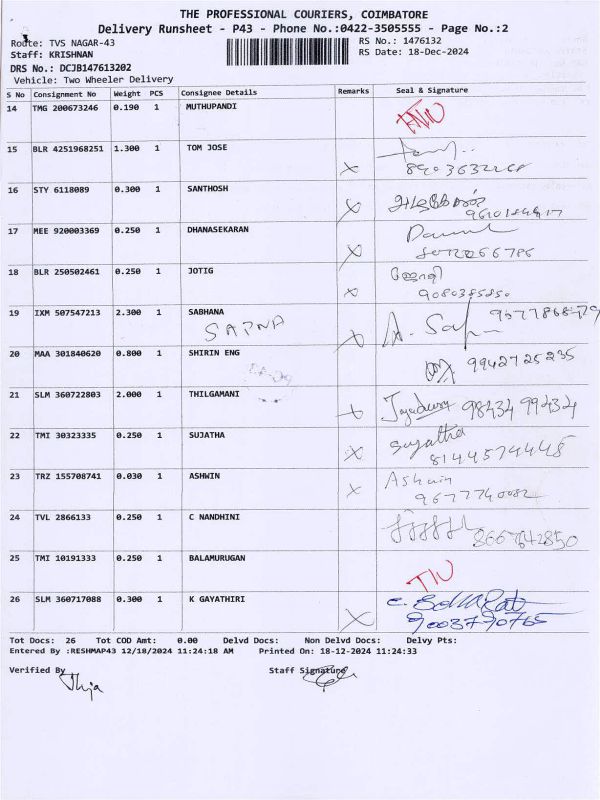 THE PROFESSIONAL COURIERS, COIMBATORE
Delivery Runsheet - P43 - Phone No.:0422-3505555 - Page No.:2
Route: TVS NAGAR-43
RS No.: 1476132
Staff: KRISHNAN
RS Date: 18-Dec-2024
DRS No.: DCJB147613202
Vehicle: Two Wheeler Delivery
S No Consignment No Weight PCS Consignee Details Remarks Seal & Signature
14 TMG 200673246 0.190 1 MUTHUPANDI
15 BLR 4251968251 1.300 1 TOM JOSE
16 STY 6118089 0.300 1 SANTHOSH
17 MEE 920003369 0.250 1 DHANASEKARAN
18 BLR 250502461 0.250 1 JOTIG
9080385850
19 IXM 507547213 2.300 1 SABHANA
SAPNA
20 MAA 301840620 0.800 1 SHIRIN ENG 9942725235
21 SLM 360722803 2.000 1 THILGAMANI 98434 99434
22 TMI 30323335 0.250 1 SUJATHA Sujatha
8144574448
23 TRZ 155708741 0.030 1 ASHWIN Ashwin
9677740082
24 TVL 2866133 0.250 1 C NANDHINI 8667642850
25 TMI 10191333 0.250 1 BALAMURUGAN
26 SLM 360717088 0.300 1 K GAYATHIRI
9003790765
Tot Docs: 26 Tot COD Amt: 0.00 Delvd Docs: Non Delvd Docs: Delvy Pts:
Entered By :RESHMAP43 12/18/2024 11:24:18 AM Printed On: 18-12-2024 11:24:33
Verified By Staff Signature